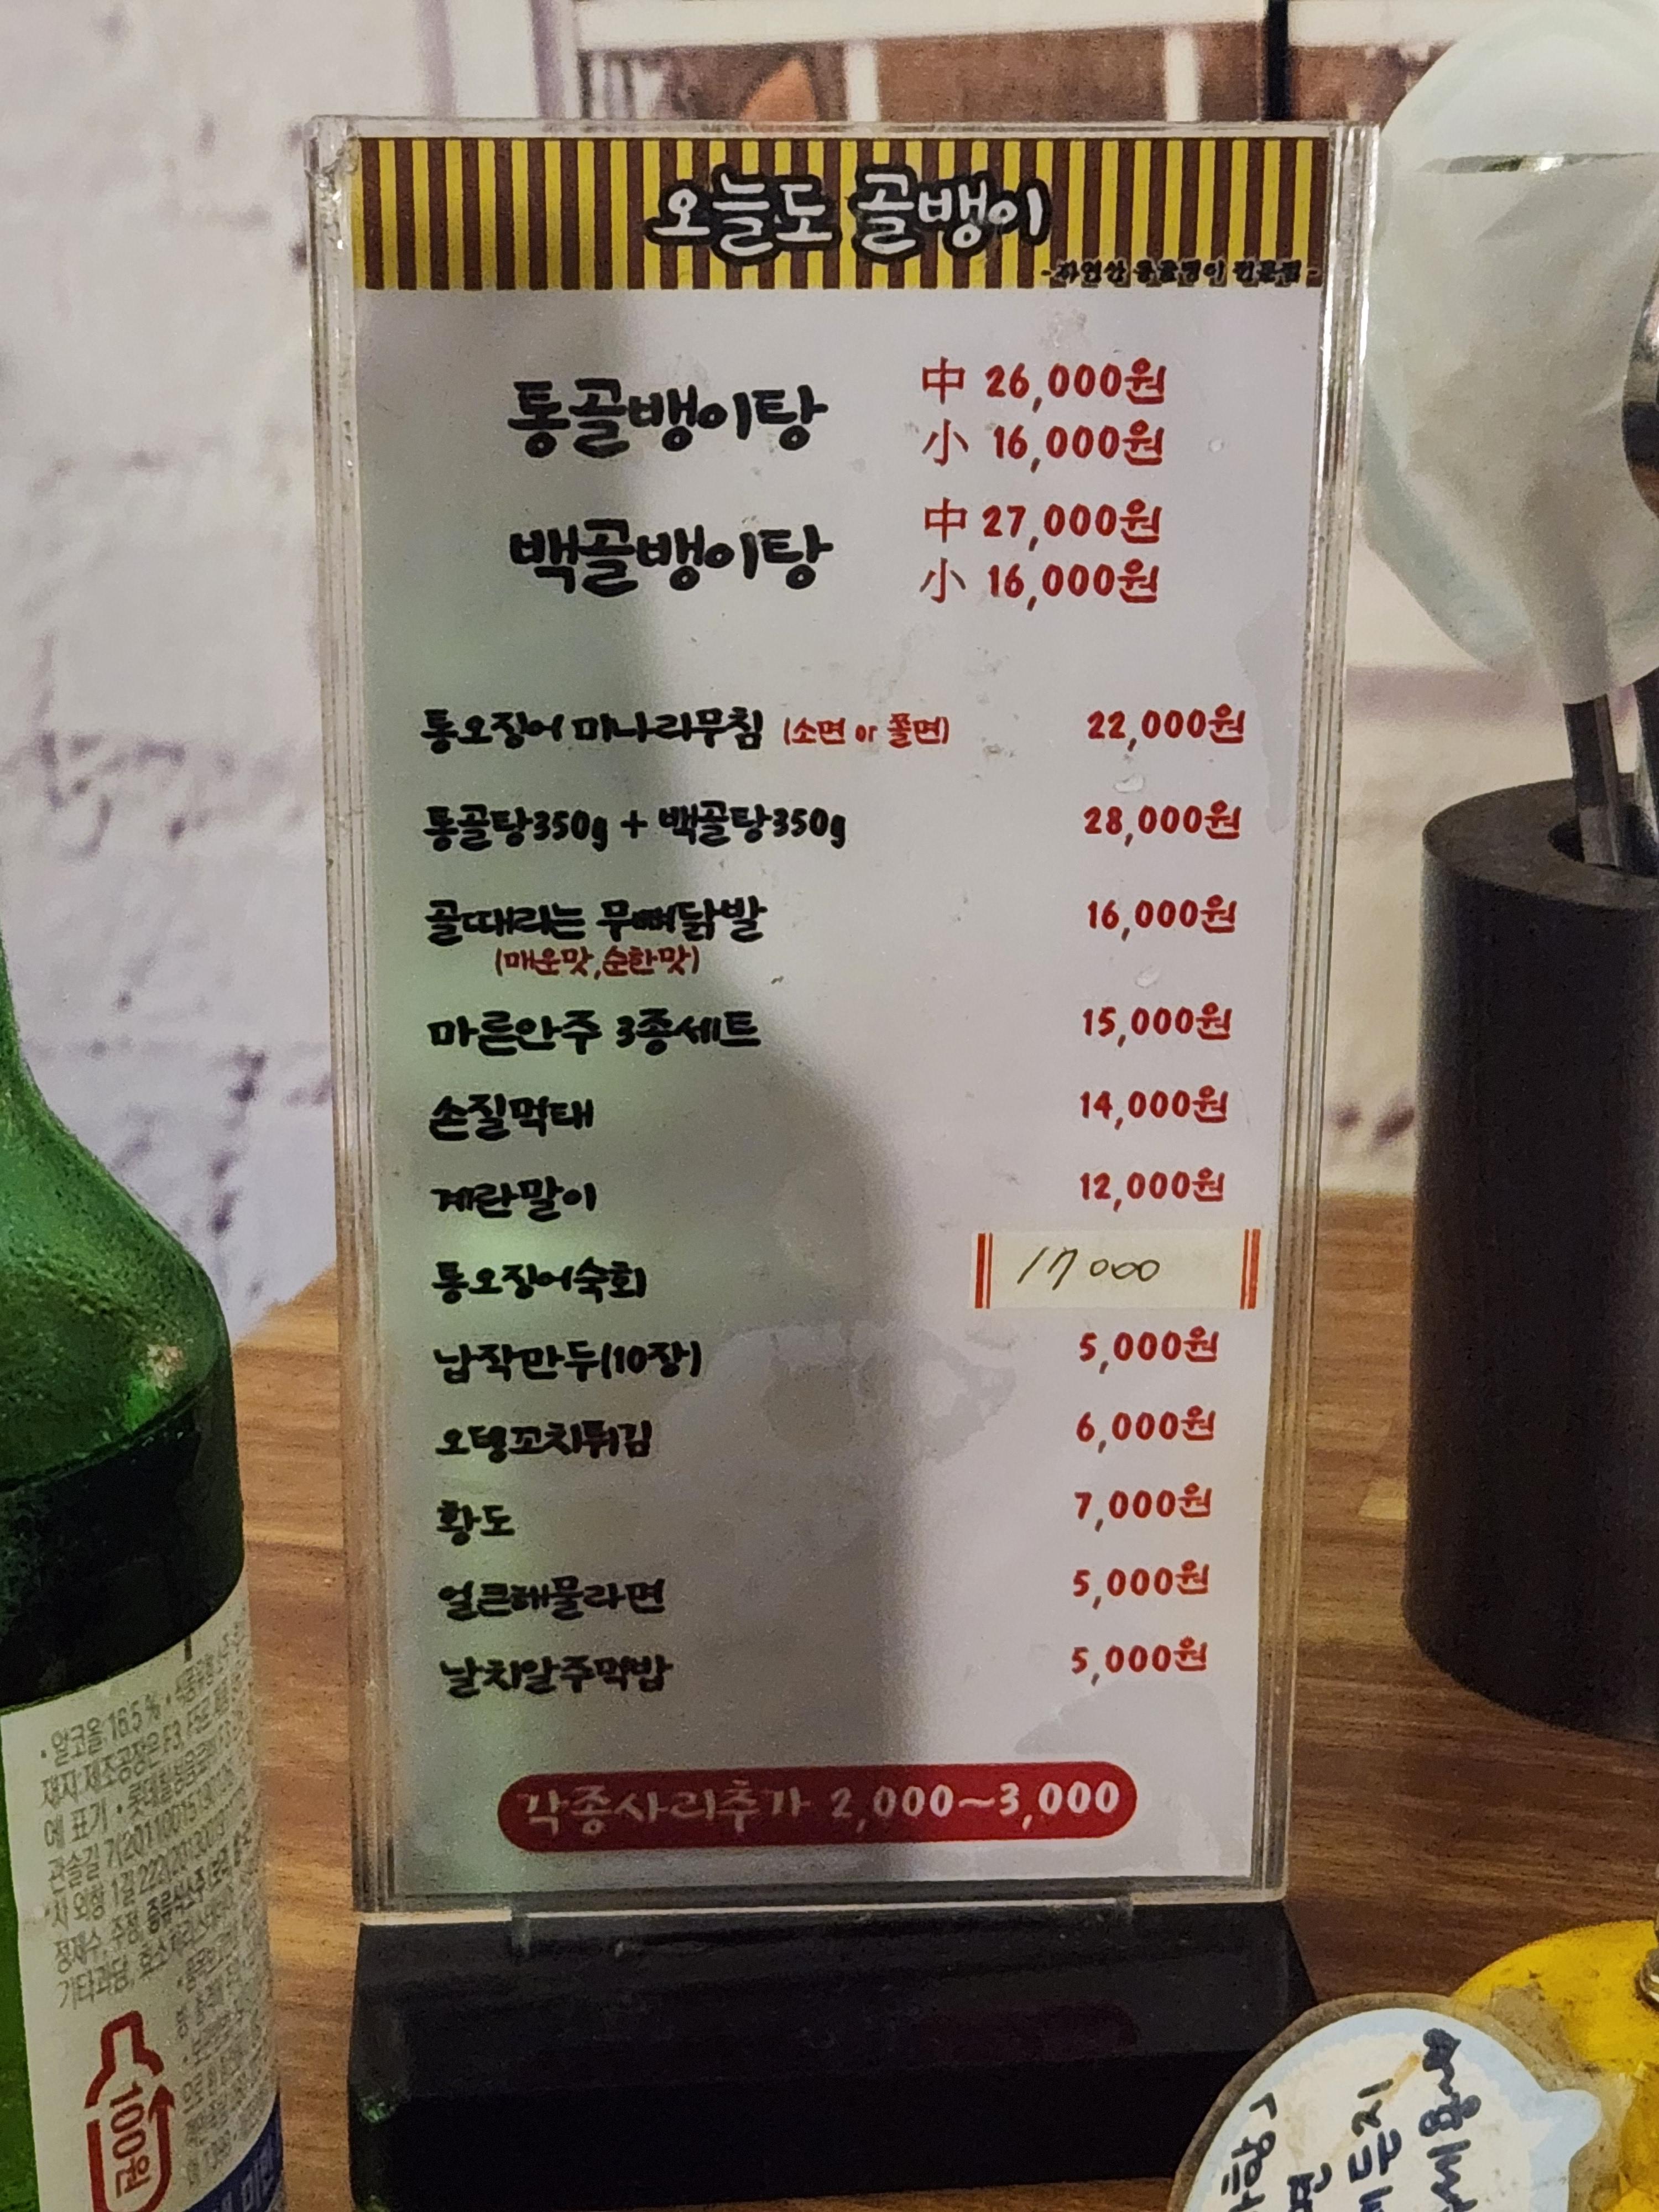 오늘도 골뱅이
-자연산 통골뱅이 전문점-
통골뱅이탕
中 26,000원
小 16,000원
백골뱅이탕
中 27,000원
小 16,000원
통오징어 미나리무침 (소면 or 쫄면) 22,000원
통골탕350g + 백골탕350g 28,000원
골때리는 무뼈닭발 16,000원
(매운맛,순한맛)
마른안주 3종세트 15,000원
손질먹태 14,000원
계란말이 12,000원
통오징어숙회 17000
납작만두(10장) 5,000원
오뎅꼬치튀김 6,000원
황도 7,000원
얼큰해물라면 5,000원
날치알주먹밥 5,000원
각종사리추가 2,000~3,000
• 알코올 16.5%
에 표기
정제수, 주정,
100원